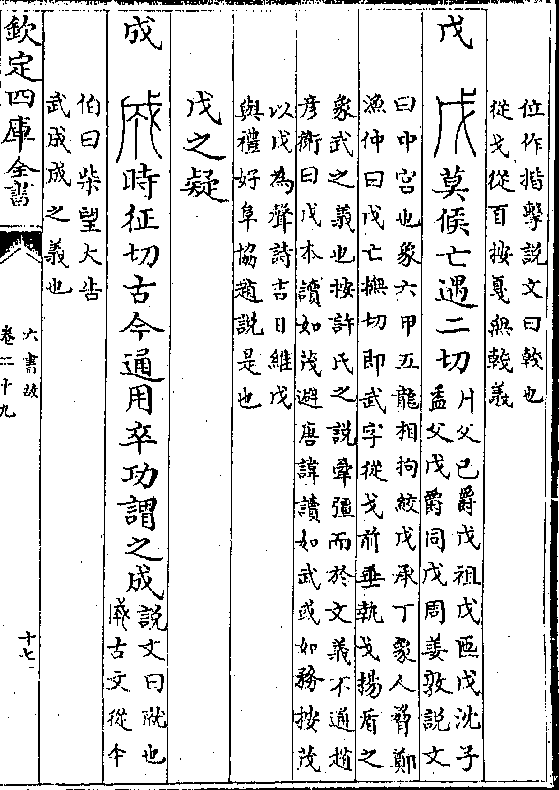 位作揩擊說文曰戟也
從戈從百按戛無戟義
戊 莫侯亡遇二切
片父已爵戊祖戊匜戊沈子
盉父戊爵同戊周姜敦說文
曰中宫也象六甲五龍相拘絞戊承丁象人脅鄭
漁仲曰戊亡撫切即武字從戈前垂執戈揚盾之
象武之義也按許氏之說牽彊而於文義不通趙
彦衛曰戊本讀如茂避唐諱讀如武或如務按茂
以戊為聲詩吉日維戊
與禮好阜協趙說是也
戊之疑
成 時征切古今通用卒功謂之成
說文曰就也
古文從午
伯曰柴望大告
武成成之義也
欽定四庫全書
六書故
卷二十九
十七